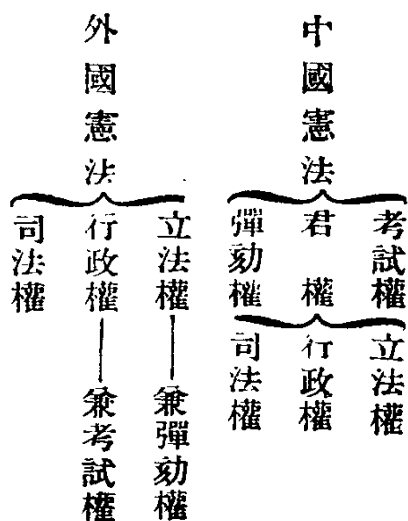 中國憲法
考試權
君權
彈劾權
立法權
行政權
司法權
外國憲法
立法權——兼彈劾權
行政權——兼考試權
司法權